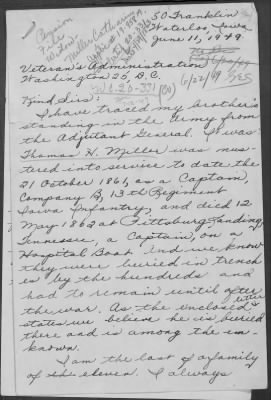 Pension
File
Widow-
Miller Catharine
50 Franklin
Waterloo, Iowa
June 11, 1949
Veteran's Administration
Washington 25, D.C.
6/22/49
Kind Sirs:
I have traced my brother's
standing in the Army from
the Adjutant General. It was:
Thomas H. Miller was mus-
tered into service to date the
21 October 1861, as a Captain,
Company B, 13th Regiment
Iowa Infantry, and died 12
May 1862 at Pittsburg Landing,
Tennessee, a Captain, on a
Hospital Boat. And we know
they were buried in trench
es by the hundreds and
had to remain until after
the war. As the enclosed letter
states we believe he is buried
there and is among the un-
known.
I am the last of a family
of the eleven. I always